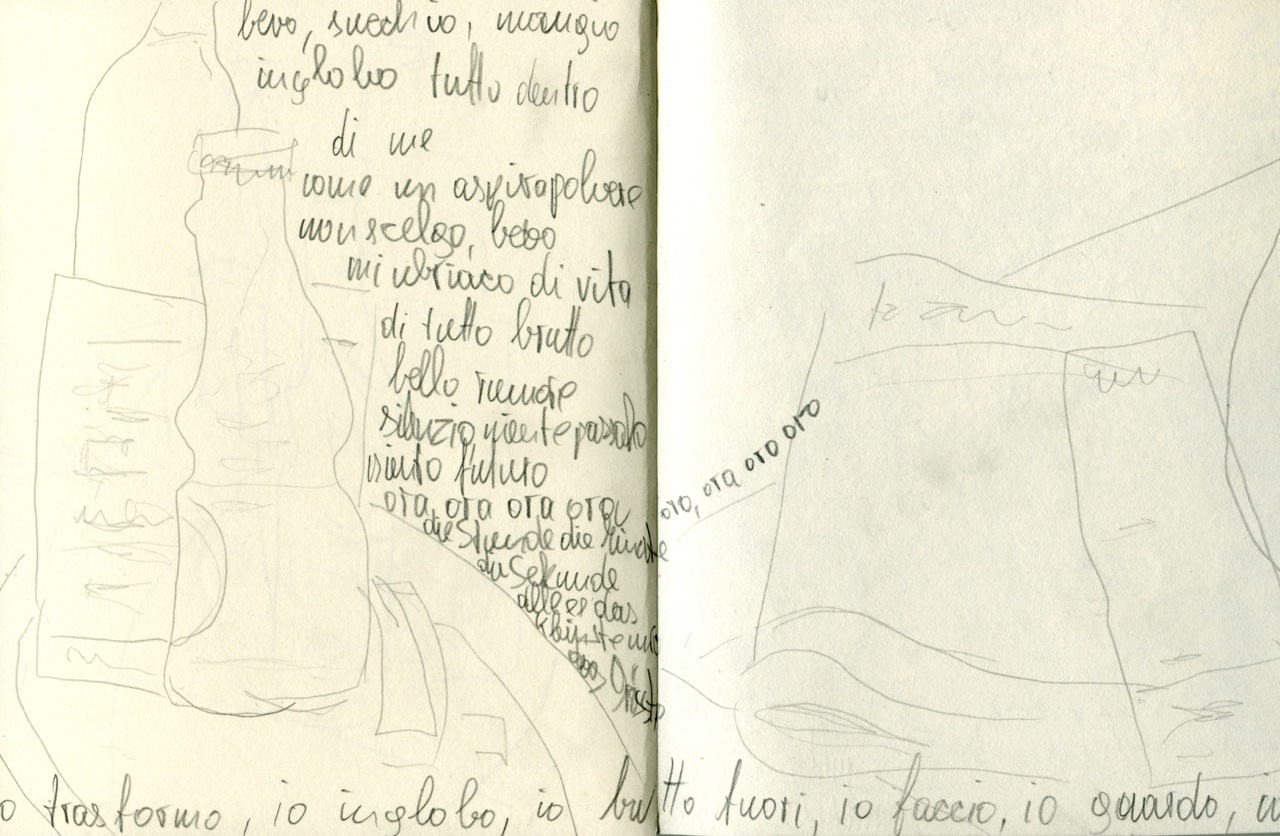 bevo, succhio, mangio
inglobo tutto dentro
di me
come un aspirapolvere
non scelgo, bevo
mi ubriaco di vita
di tutto brutto
bello rumore
silenzio niente passato
futuro
ora, ora ora ora
oro, ora oro oro
die Stunde die Minute
die Sekunde
alles das
o trasformo, io inglobo, io butto fuori, io faccio, io guardo,